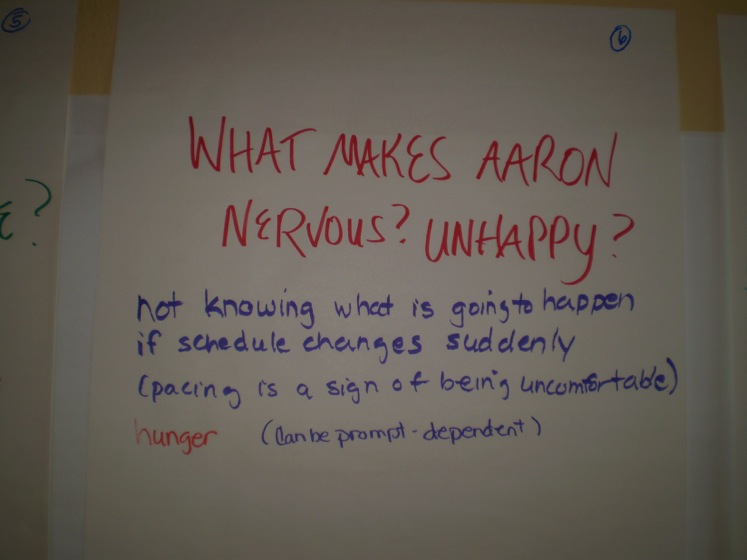 5
6
WHAT MAKES AARON
NERVOUS? UNHAPPY?
?
not knowing what is going to happen
if schedule changes suddenly
(pacing is a sign of being uncomfortable)
hunger (can be prompt-dependent)